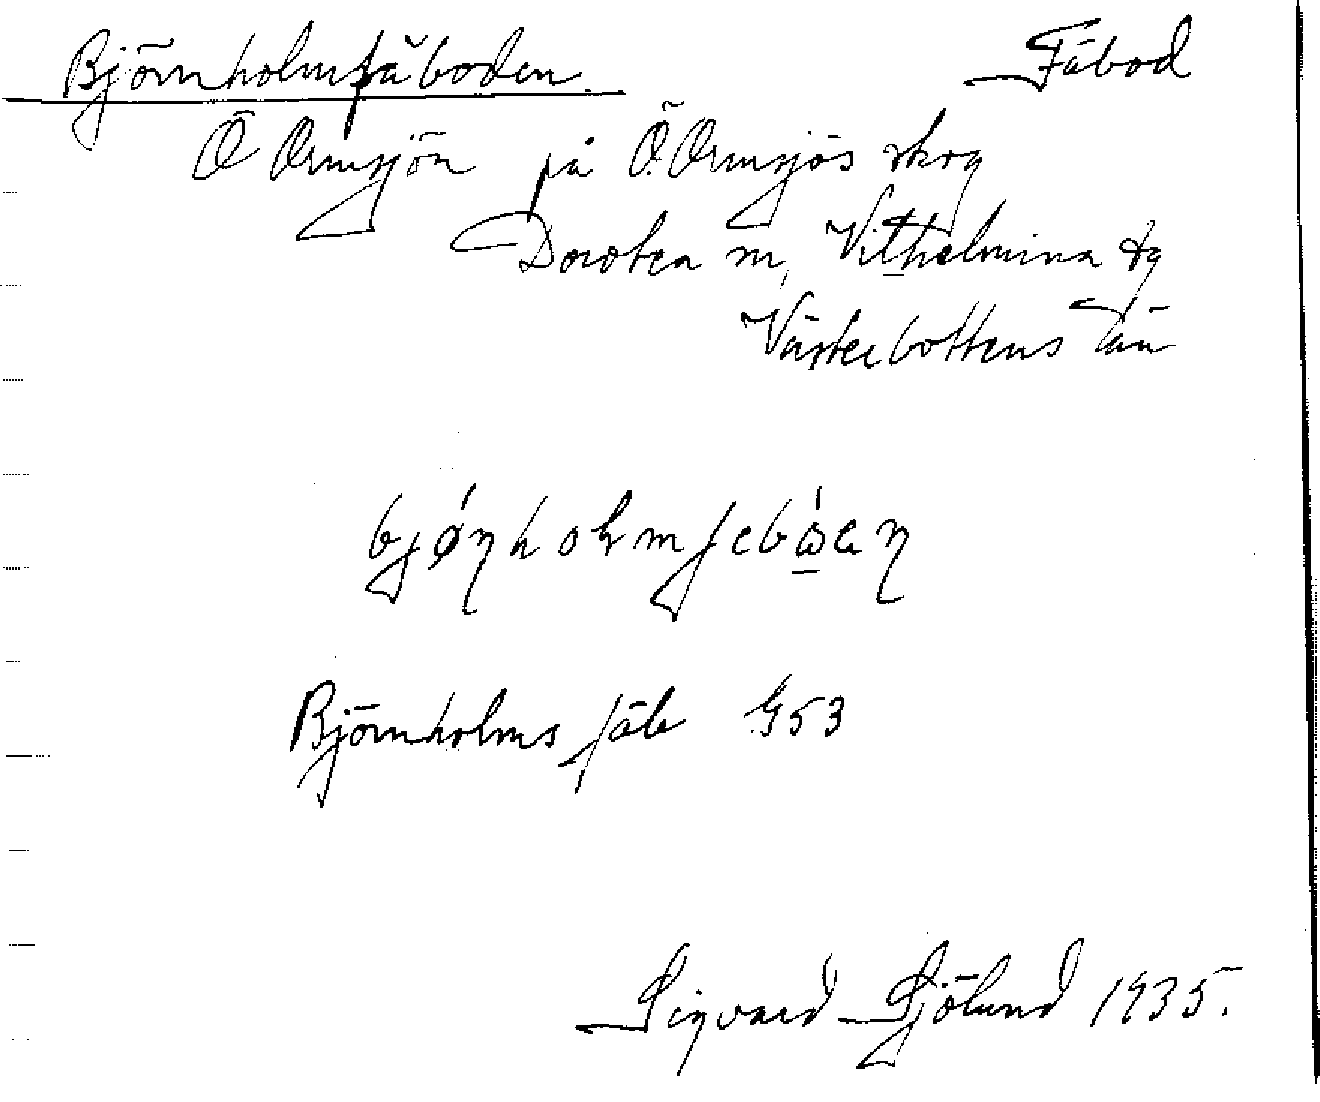 Björnholmfäboden. Fäbod
Ö Ormsjön på Ö. Ormsjös skog
Dorotea m, Vilhelmina tg
Västerbottens län
Björnholms fäb G53
Sigvard Sjölund 1935.